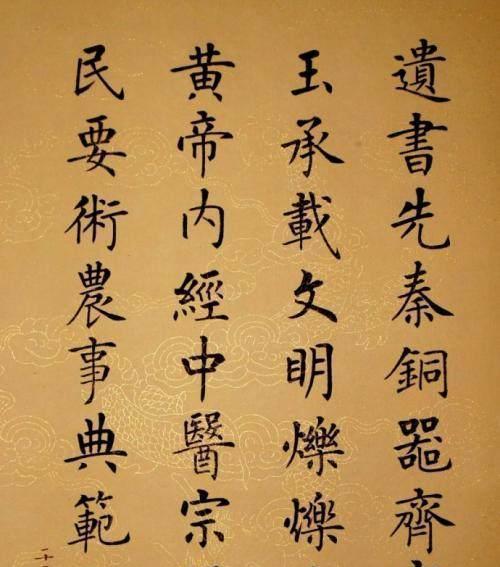 遺書先秦銅器齊
玉承載文明爍爍
黄帝内經中醫宗
民要術農事典範